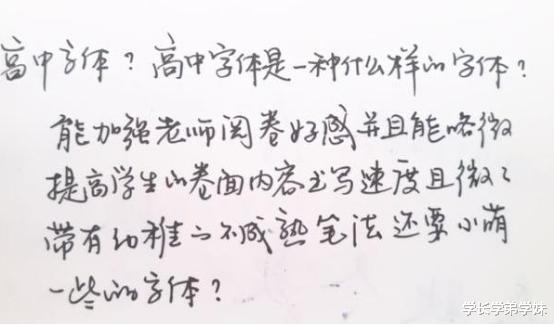 高中字体？高中字体是一种什么样的字体？
能加强老师阅卷好感并且能略微
提高学生的卷面内容书写速度且微微
带有幼稚而不成熟笔法还要小萌
一些的字体？
学长学弟学妹